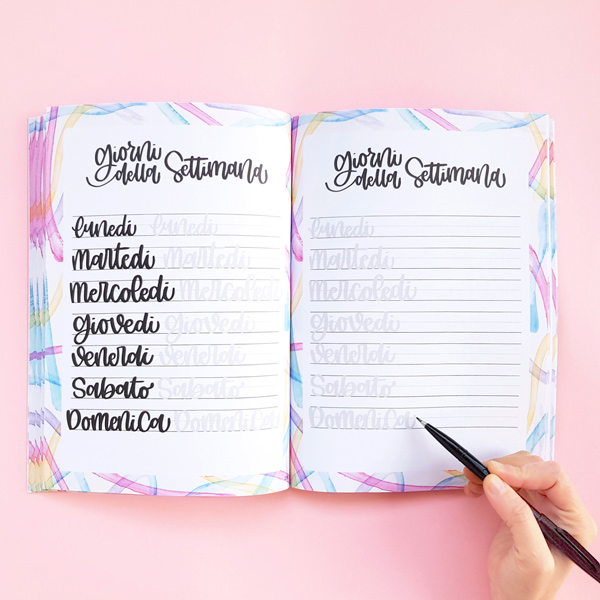 giorni
della Settimana
lunedi lunedi
martedi martedi
mercoledi mercoledi
giovedi giovedi
venerdi venerdi
Sabato Sabato
Domenica Domenica
giorni
della Settimana
lunedi
martedi
mercoledi
giovedi
venerdi
Sabato
Domenica